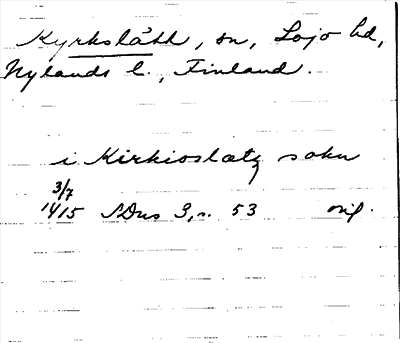 Kyrkslätt, sn, Lojo hd,
Nylands l., Finland.
i Kirkioslætz sokn
3/7
1415 SDns 3, s. 53 orig.